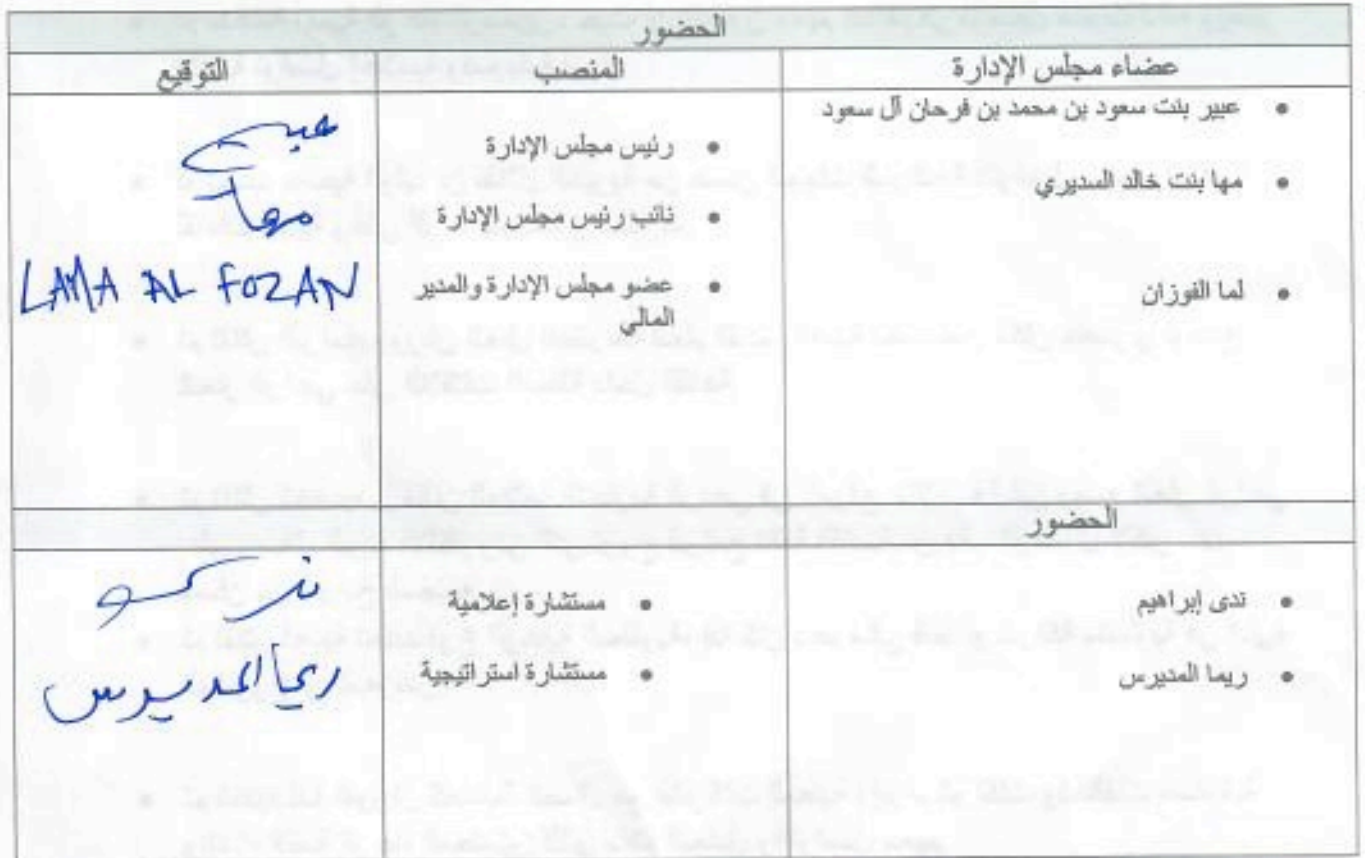 الحضور
عضاء مجلس الإدارة المنصب التوقيع
• عبير بنت سعود بن محمد بن فرحان آل سعود
• رئيس مجلس الإدارة
عبير
• مها بنت خالد السديري
• نائب رئيس مجلس الإدارة
مها
• لما الفوزان
• عضو مجلس الإدارة والمدير
المالي
LAMA AL FOZAN
الحضور
• ندى إبراهيم
• مستشارة إعلامية
• ريما المديرس
• مستشارة استراتيجية
ريما المديرس